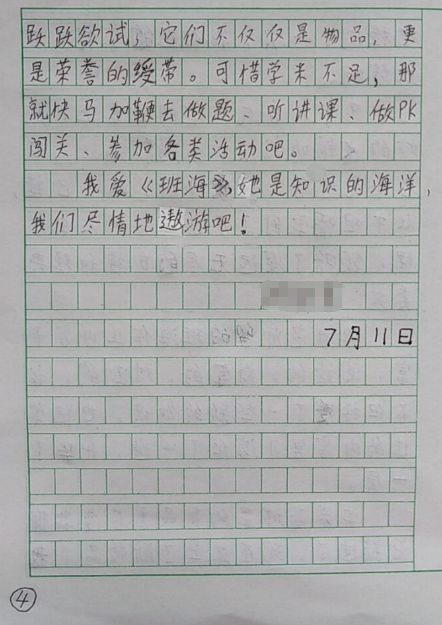 跃跃欲试，它们不仅仅是物品，更
是荣誉的绶带。可惜学米不足，那
就快马加鞭去做题、听讲课、做PK
闯关、参加各类活动吧。
我爱《班海》，她是知识的海洋，
我们尽情地遨游吧！
7月11日
④